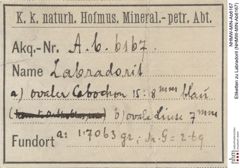 K. k. naturh. Hofmus. Mineral.- petr. Abt.
Akq.-Nr. A. b. 6167.
Name Labradorit
a) ovaler Cabochon 15:8 mm blau
b) ovale Linse 7 mm
Fundort a: 1·7063 gr, sp. G = 2·69
NHMW-MIN-Abt6167
Etiketten zu Labradorit (NHMW-MIN-Abt6167)